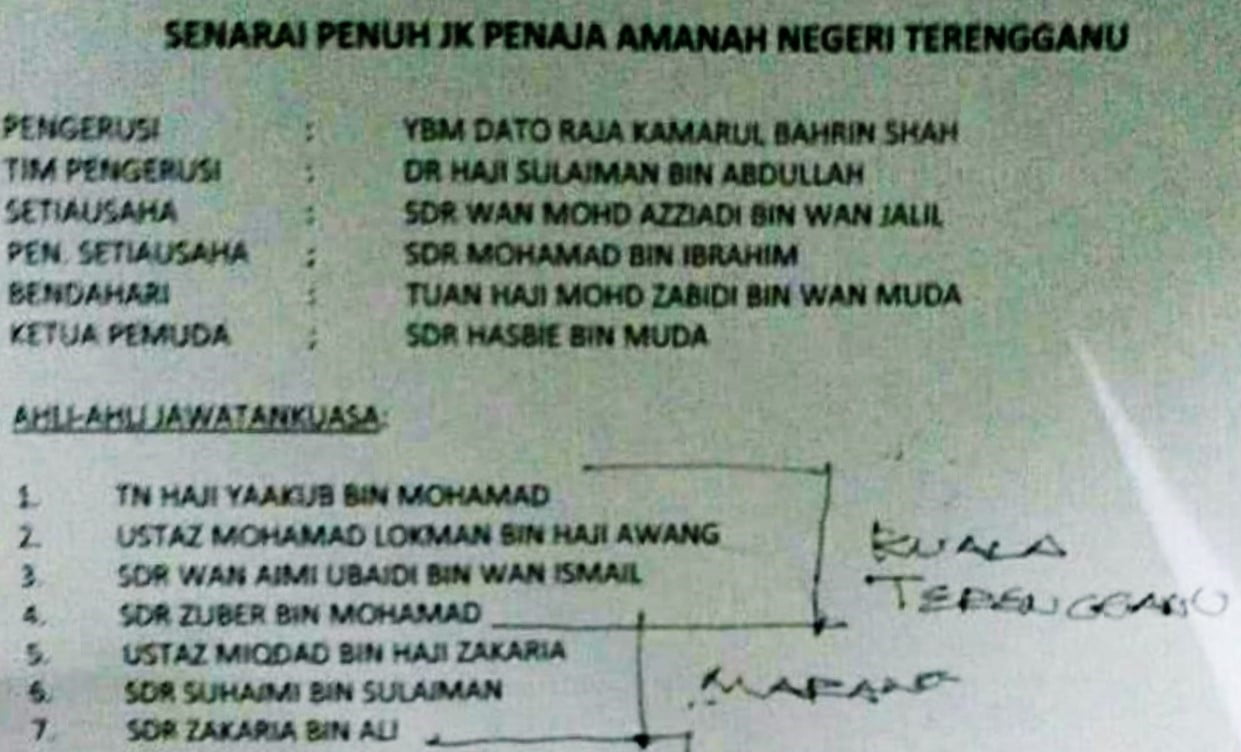 SENARAI PENUH JK PENAJA AMANAH NEGERI TERENGGANU
PENGERUSI : YBM DATO RAJA KAMARUL BAHRIN SHAH
TIM PENGERUSI : DR HAJI SULAIMAN BIN ABDULLAH
SETIAUSAHA : SDR WAN MOHD AZZIADI BIN WAN JALIL
PEN. SETIAUSAHA : SDR MOHAMAD BIN IBRAHIM
BENDAHARI : TUAN HAJI MOHD ZABIDI BIN WAN MUDA
KETUA PEMUDA : SDR HASBIE BIN MUDA
AHLI-AHLI JAWATANKUASA:
1. TN HAJI YAAKUB BIN MOHAMAD
2. USTAZ MOHAMAD LOKMAN BIN HAJI AWANG
3. SDR WAN AIMI UBAIDI BIN WAN ISMAIL
4. SDR ZUBER BIN MOHAMAD
KUALA
TERENGGANU
5. USTAZ MIQDAD BIN HAJI ZAKARIA
6. SDR SUHAIMI BIN SULAIMAN
7. SDR ZAKARIA BIN ALI
MARANG